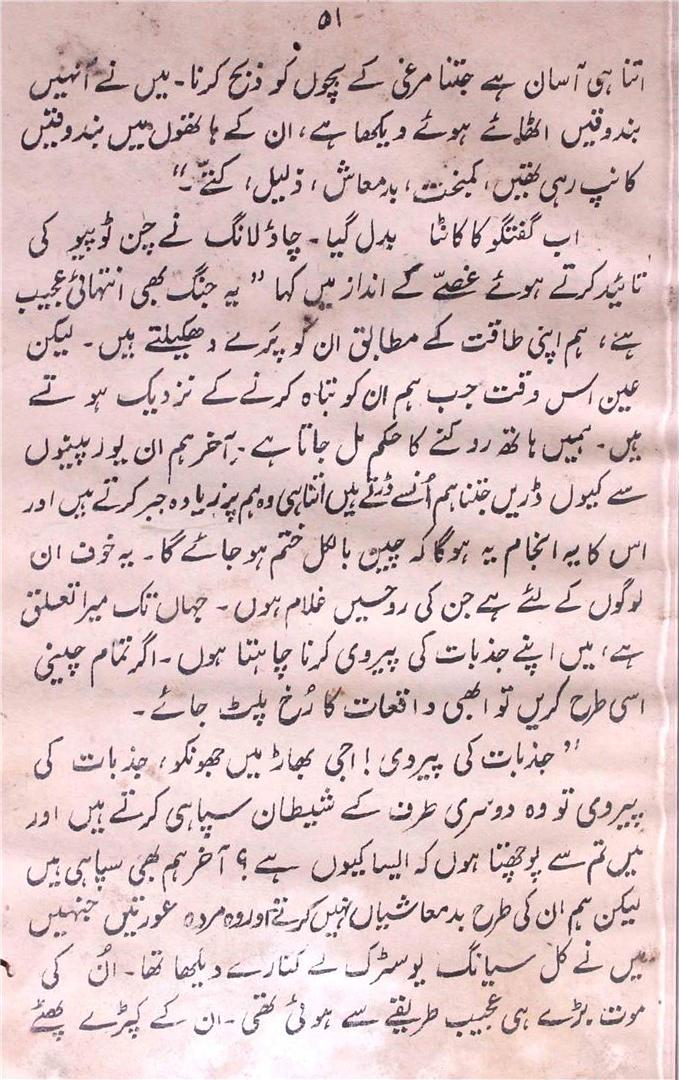 ۵۱
اتنا ہی آسان ہے جتنا مرغی کے بچوں کو ذبح کرنا۔ میں نے اُنہیں
بندوقیں اٹھائے ہوئے دیکھا ہے، ان کے ہاتھوں میں بندوقیں
کانپ رہی تھیں، کمبخت، بدمعاش، ذلیل، کتے۔“
اب گفتگو کا کانٹا بدل گیا۔ چاؤلانگ نے چن ٹوپیو کی
تائید کرتے ہوئے غصے کے انداز میں کہا ”یہ جنگ بھی انتہائی عجیب
ہے، ہم اپنی طاقت کے مطابق ان کو پَرے دھکیلتے ہیں۔ لیکن
عین اس وقت جب ہم ان کو تباہ کرنے کے نزدیک ہوتے
ہیں۔ ہمیں ہاتھ روکنے کا حکم مل جاتا ہے۔ آخر ہم ان یورپینوں
سے کیوں ڈریں جتنا ہم اُنسے ڈرتے ہیں اتنا ہی وہ ہم پر زیادہ جبر کرتے ہیں اور
اس کا یہ انجام یہ ہوگا کہ چین بالکل ختم ہو جائے گا۔ یہ خوف ان
لوگوں کے لئے ہے جن کی روحیں غلام ہوں۔ جہاں تک میرا تعلق
ہے، میں اپنے جذبات کی پیروی کرنا چاہتا ہوں۔ اگر تمام چینی
اسی طرح کریں تو ابھی واقعات کا رُخ پلٹ جائے۔
”جذبات کی پیروی! اجی بھاڑ میں جھونکو، جذبات کی
پیروی تو وہ دوسری طرف کے شیطان سپاہی کرتے ہیں اور
میں تم سے پوچھتا ہوں کہ ایسا کیوں ہے؟ آخر ہم بھی سپاہی ہیں
لیکن ہم ان کی طرح بدمعاشیاں نہیں کرتے اور وہ مردہ عورتیں جنہیں
میں نے کل سیانگ یو سڑک کے کنارے دیکھا تھا۔ اُن کی
موت بڑے ہی عجیب طریقے سے ہوئی تھی۔ ان کے کپڑے پھٹے